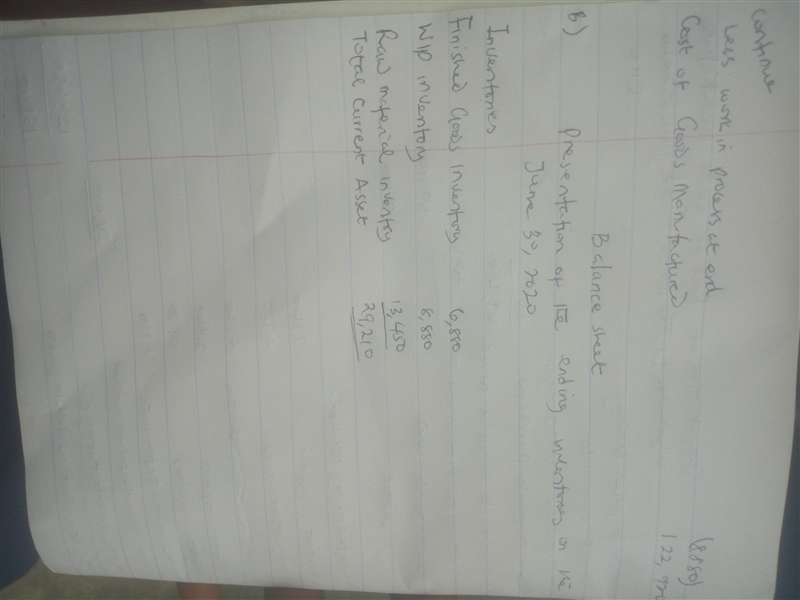 continue
Less: work in process at end (8,880)
Cost of Goods Manufactured
B) Presentation of the ending inventories on the
Balance sheet
June 30, 2020
Inventories
Finished Goods Inventory 6,880
WIP inventory 8,880
Raw material inventory 13,450
Total Current Asset 29,210